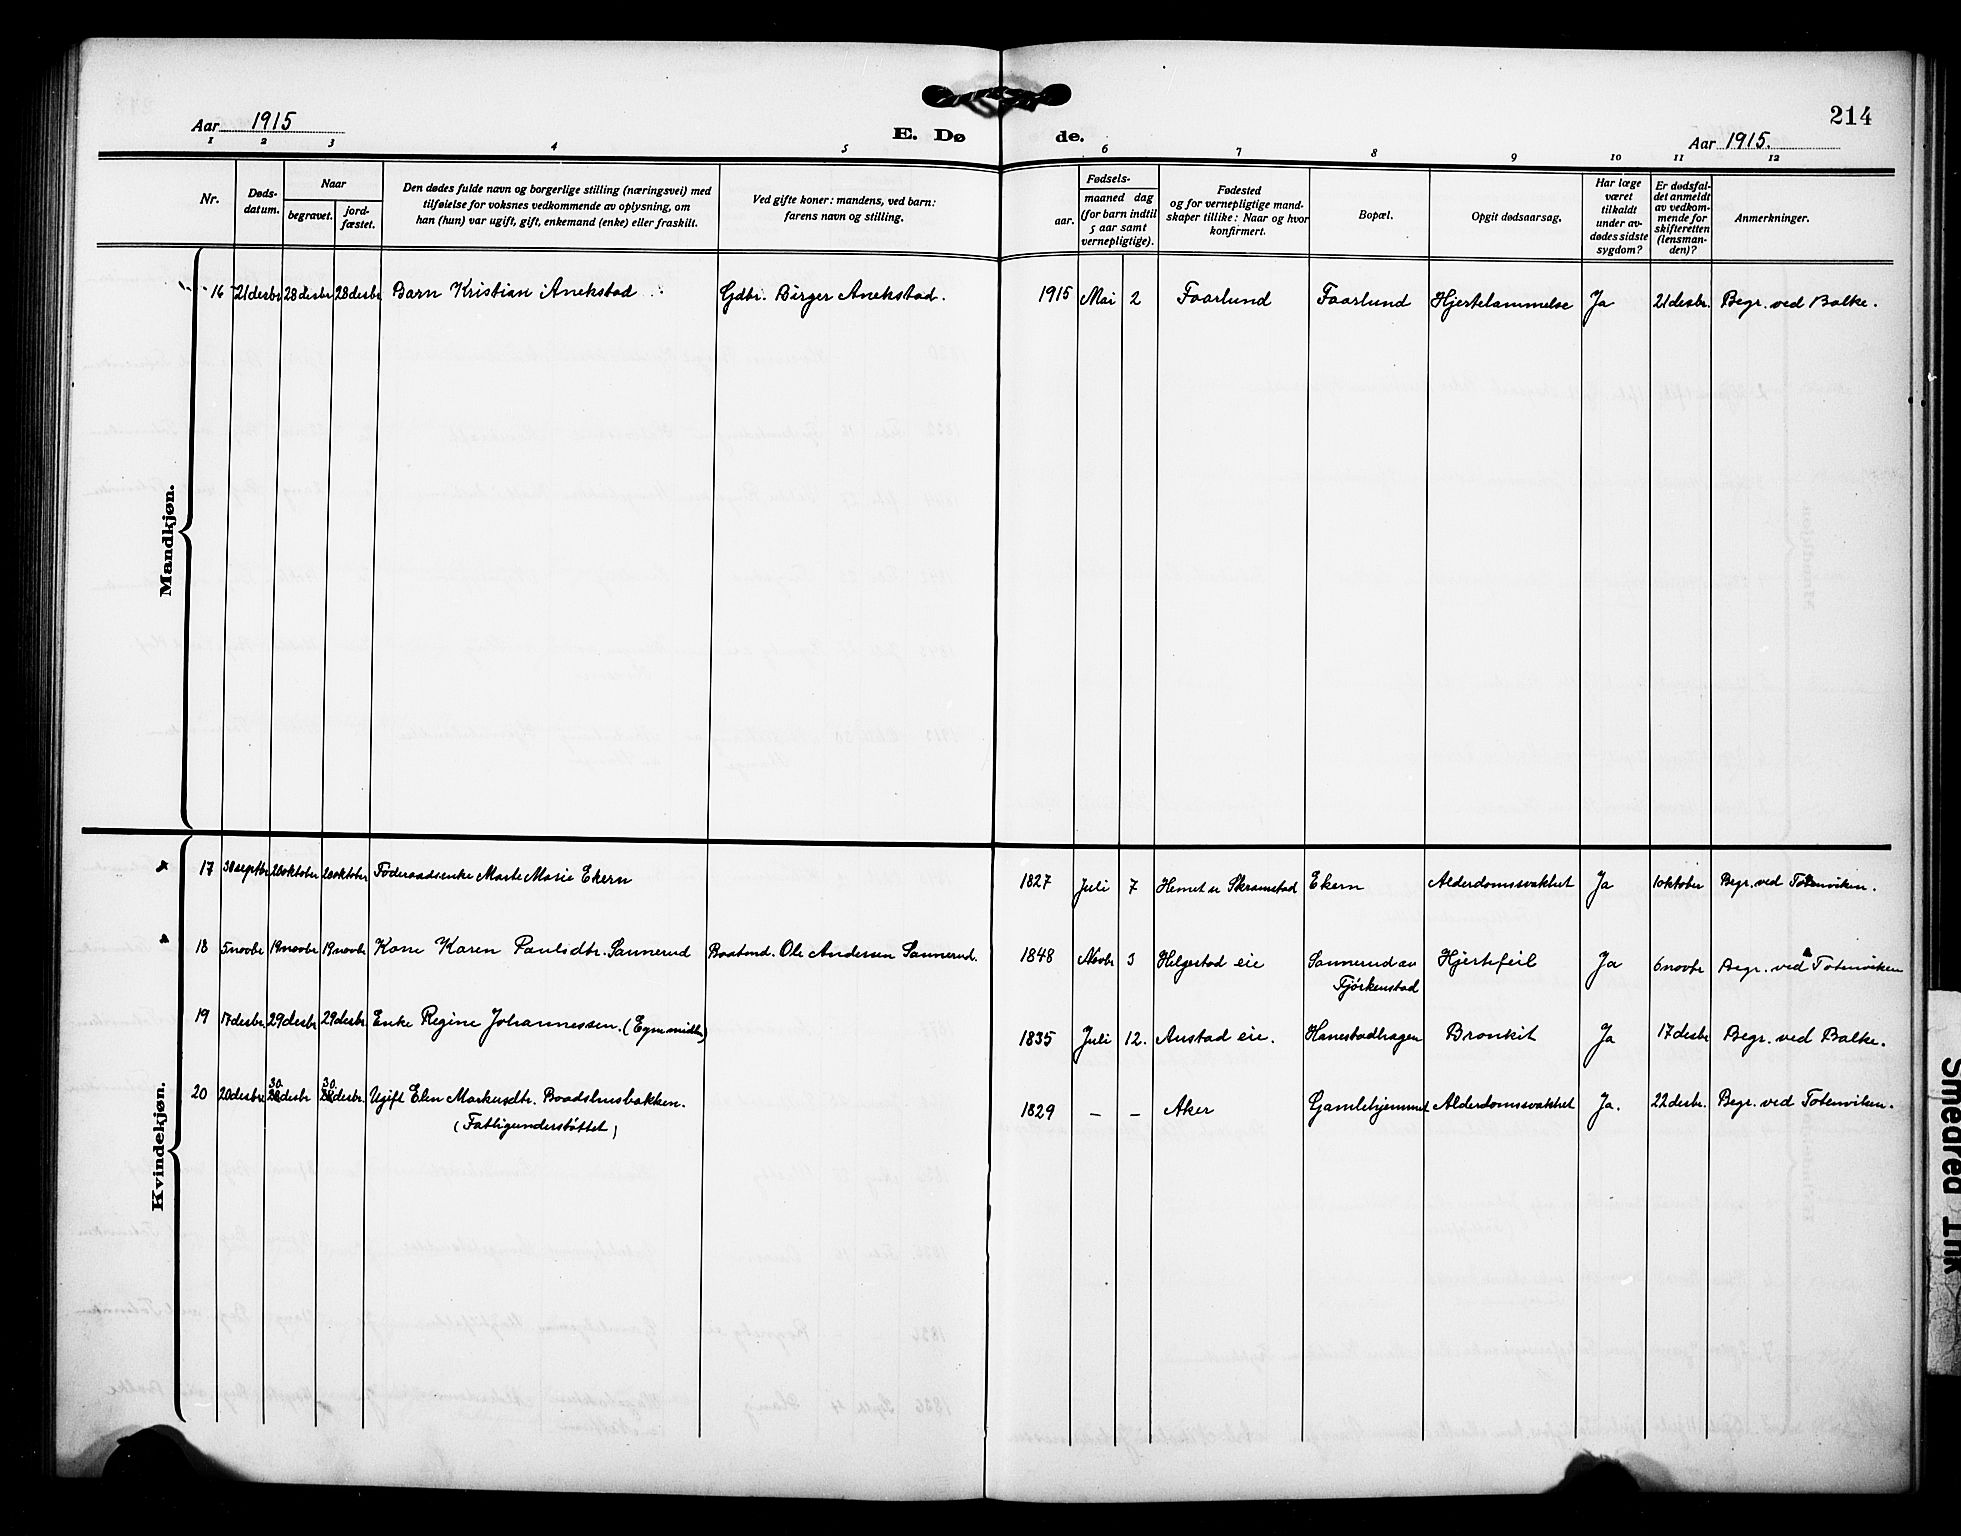 214
Aar 1915
E. Dø de.
Aar 1915.
1 2 3 4 5 6 7 8 9 10 11 12
Nr.
Døds-
datum.
Naar
begravet.
jord-
fæstet.
Den dødes fulde navn og borgerlige stilling (næringsvei) med
tilføielse for voksnes vedkommende av oplysning, om
han (hun) var ugift, gift, enkemand (enke) eller fraskilt.
Ved gifte koner: mandens, ved barn:
farens navn og stilling.
Fødsels-
aar.
maaned dag
(for barn indtil
5 aar samt
vernepligtige).
Fødested
og for vernepligtige mand-
skaper tillike: Naar og hvor
konfirmert.
Bopæl.
Opgit dødsaarsag.
Har læge
været
tilkaldt
under av-
dødes sidste
sygdom?
Er dødsfal-
det anmeldt
av vedkom-
mende for
skifteretten
(lensman-
den)?
Anmerkninger.
Mandkjøn.
16 21 desbr 28 desbr 28 desbr Barn Kristian Anekstad Gdbr. Birger Anekstad. 1915 Mai 2 Faarlund Faarlund Hjertelammelse Ja 21 desbr. Begr. ved Balke.
Kvindekjøn.
17 septbr oktober oktober Føderaadsenke Marte Marie Ekern 1827 Juli 7 Skramstad Ekern Alderdomssvakhet Ja 1 oktober Begr. ved Totenviken.
18 5 novbr 19 novbr 19 novbr Kone Karen Paulsdtr. Sannerud Baatmd. Ole Andersen Sannerud. 1848 Novbr 3 Helgestad eie Sannerud av Hjertefeil Ja 6 novbr Begr. ved Totenviken
Tjørkenstad
19 17 desbr. 29 desbr 29 desbr. Enke Regine Johannessen. 1835 Juli 12. Anstad eie. Hanestadhagen Bronkit Ja 17 desbr Begr. ved Balke.
30 30
20 20 desbr desbr desbr. Ugift Elen Markusdtr. Baadshusbakken. 1829 – – Aker Gamlehjemmet Alderdomssvakhet Ja. 22 desbr. Begr. ved Totenviken.
(Fattigunderstøttet)
Smeared Ink